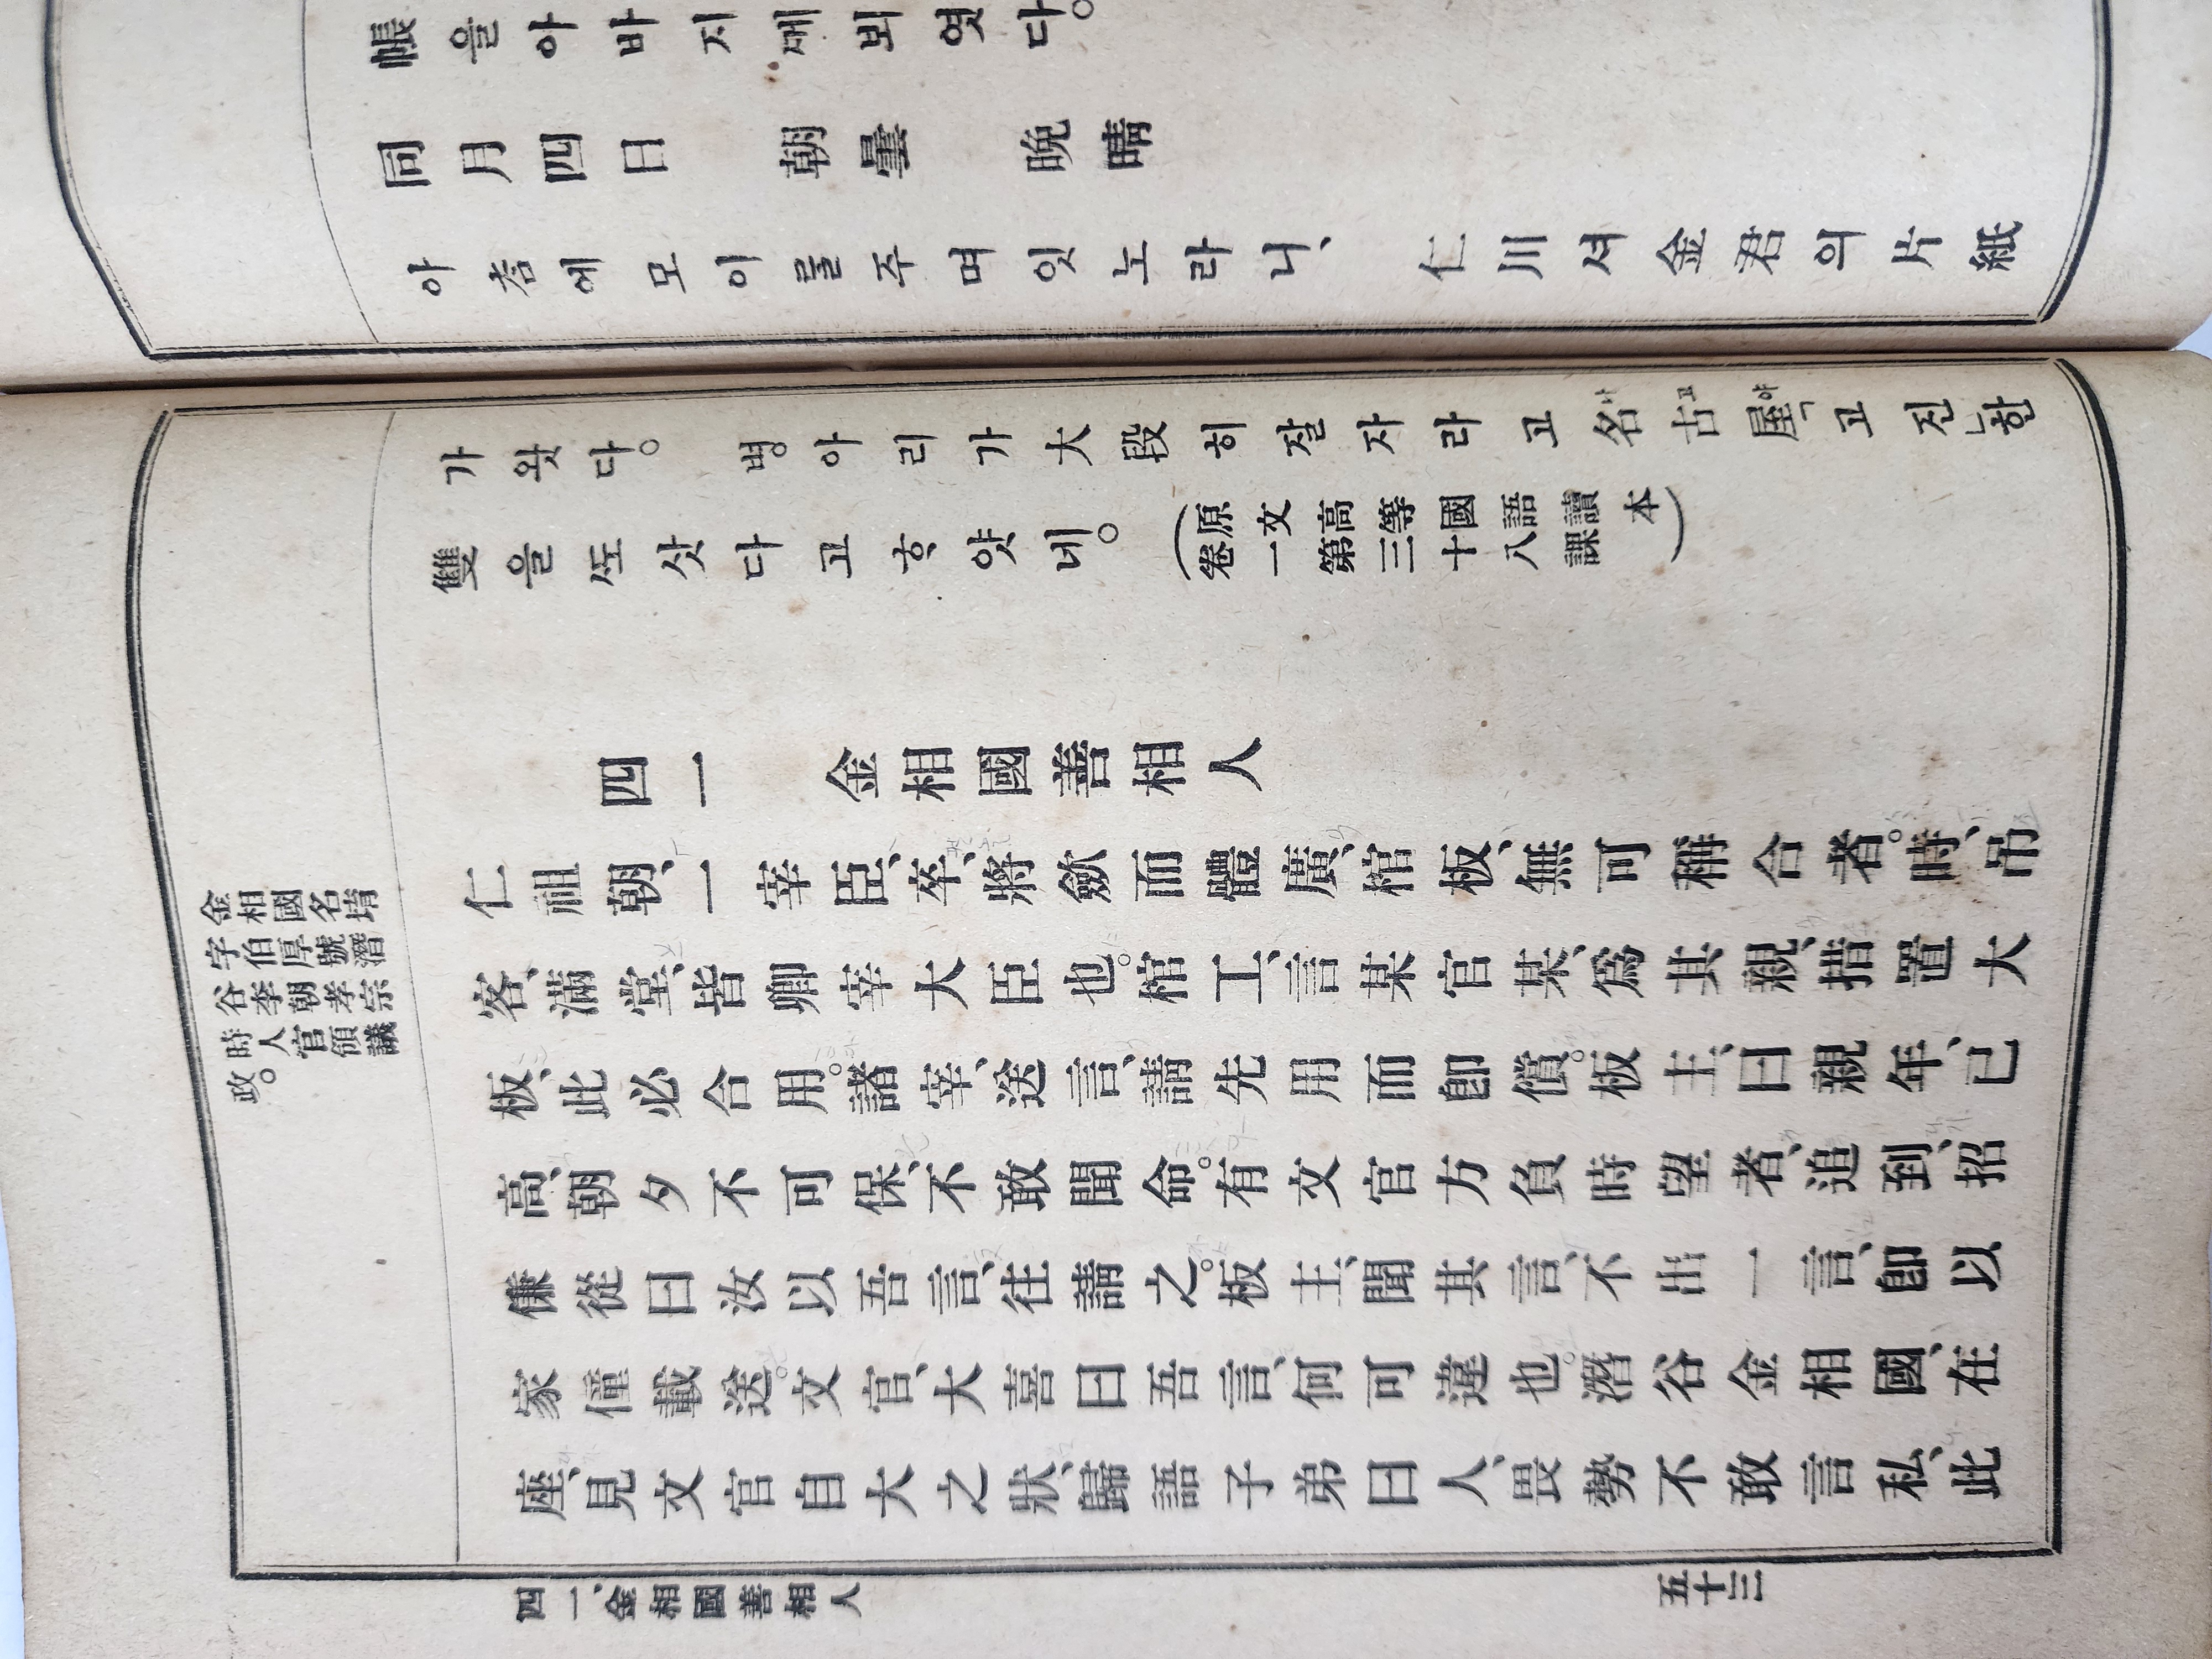 帳을아바지ᄭᅦ뵈엿다。
同月四日　朝曇　晩晴
아츰에모이를주며잇노라니、仁川셔金君의片紙
가왓다。병아리가大段히잘자라고名古屋「고진」한
나고야
雙을ᄯᅩ삿다고ᄒᆞ얏네。
(原文高等國語讀本
卷一第三十八課)
四一　金相國善相人
金相國名堉
字伯厚號潛
谷李朝孝宗
時人官領議
政。
仁祖朝、一宰臣、卒、將斂而體廣、棺板、無可稱合者。時、吊
客、滿堂、皆卿宰大臣也。棺工、言某官某、爲其親、措置大
板、此必合用。諸宰、送言、請先用而卽償。板主、曰親年、已
高、朝夕不可保、不敢聞命。有文官方負時望者、追到、招
傔從曰汝以吾言、往請之。板主、聞其言、不出一言、卽以
家僮載送。文官、大喜曰吾言、何可違也。潛谷金相國、在
座、見文官自大之狀、歸語子弟曰人、畏勢不敢言私、此
四一、金相國善相人
五十三